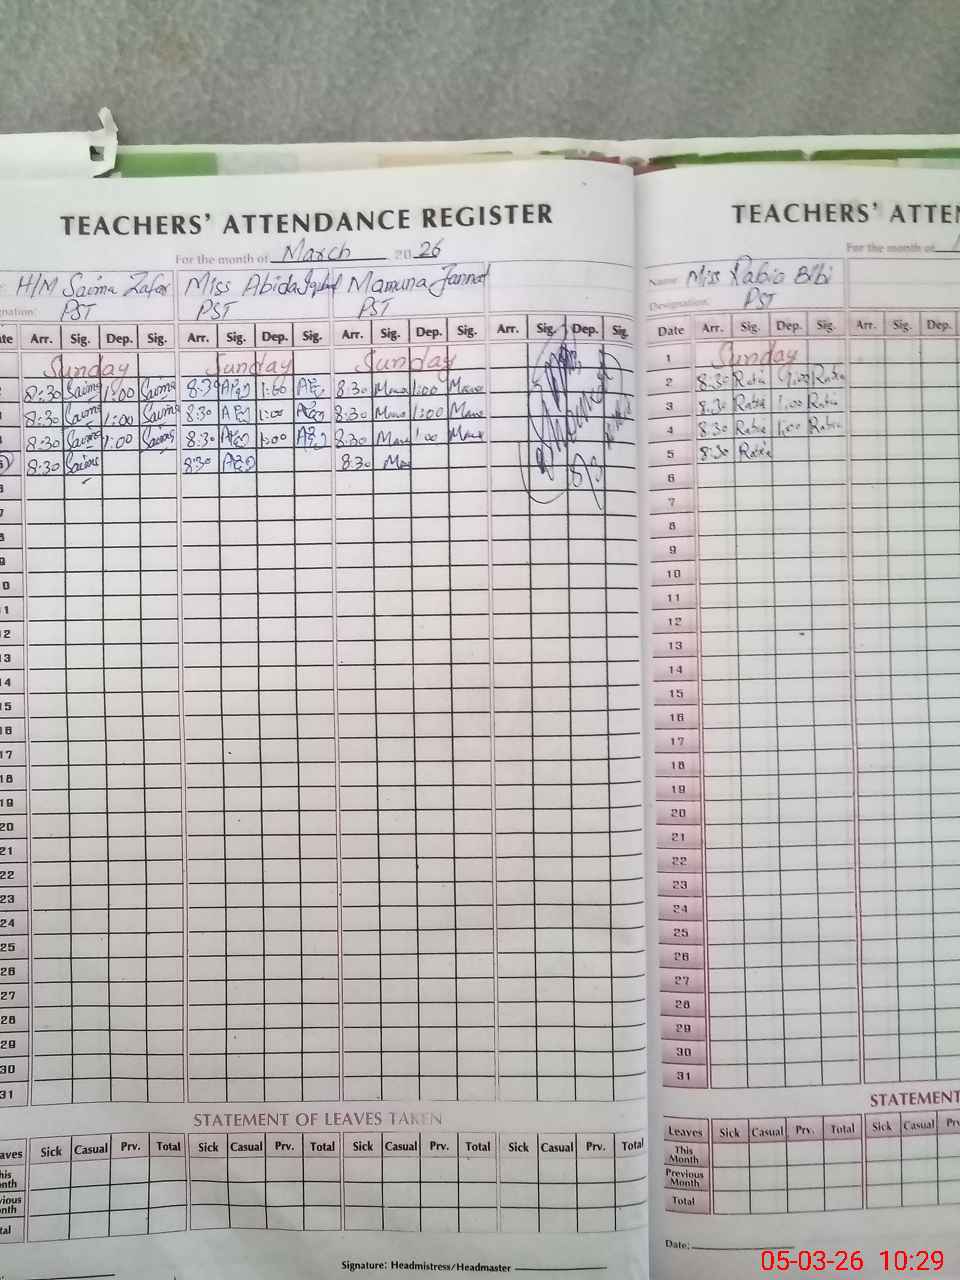 TEACHERS' ATTENDANCE REGISTER
For the month of March 2026
H/M Saima Zafar Miss Abida Iqbal Mamuna Jannat
PST PST PST
Arr. Sig. Dep. Sig. Arr. Sig. Dep. Sig. Arr. Sig. Dep. Sig. Arr. Sig. Dep. Sig.
Sunday Sunday Sunday
8:30 Saima 1:00 Saima 8:30 1:00 8:30 1:00
8:30 Saima 1:00 Saima 8:30 1:00 8:30 1:00
8:30 Saima 1:00 Saima 8:30 1:00 8:30 1:00
8:30 Saima 8:30 8:30
7
8
9
10
11
12
13
14
15
16
17
18
19
20
21
22
23
24
25
26
27
28
29
30
31
STATEMENT OF LEAVES TAKEN
Sick Casual Prv. Total Sick Casual Prv. Total Sick Casual Prv. Total Sick Casual Prv. Total
Signature: Headmistress/Headmaster
TEACHERS' ATTE
For the month of
Name: Miss Rabia Bibi
Designation: PST
Date Arr. Sig. Dep. Sig. Arr. Sig. Dep.
1 Sunday
2 8:30 Rabia 1:00 Rabia
3 8:30 Rabia 1:00 Rabia
4 8:30 Rabia 1:00 Rabia
5 8:30 Rabia
6
7
8
9
10
11
12
13
14
15
16
17
18
19
20
21
22
23
24
25
26
27
28
29
30
31
STATEMENT
Leaves Sick Casual Prv. Total Sick Casual
This Month
Previous Month
Total
Date:
05-03-26 10:29